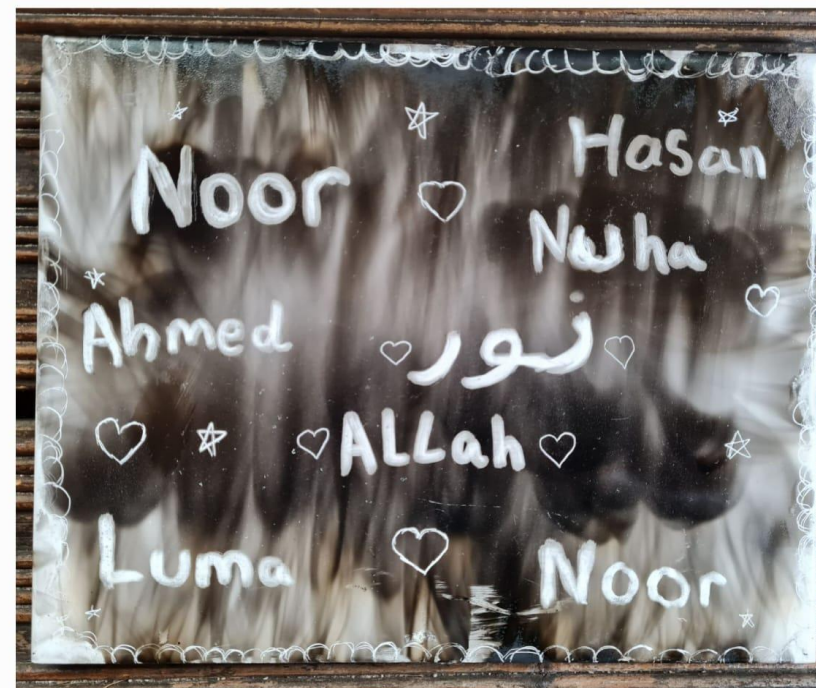 Noor
Hasan
Nuha
Ahmed
نور
ALLah
Luma
Noor